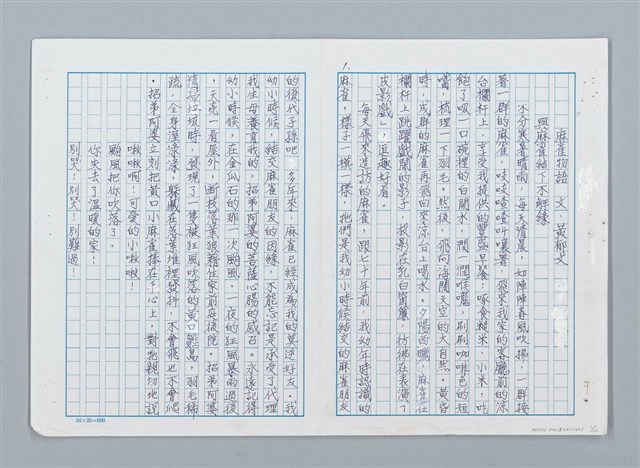 麻雀物語　文、黃郁文
與麻雀結下不解緣
不分寒暑晴雨，每天清晨，如陣陣春風吹拂，一群接
著一群的麻雀，吱吱喳喳叫嚷著，飛來我家的客廳前的涼
台欄杆上，享受我提供的豐盛早餐；啄食糙米、小米，吃
飽了吸一口碗裡的白開水，潤一潤喉嚨，刷刷咖啡色的短
嘴，梳理一下羽毛。然後，飛向海闊天空的大自然。黃昏
時，成群的麻雀再飛回來涼台上喝水。夕陽西曬，麻雀在
欄杆上跳躍戲鬧的影子，投影在乳白窗簾，彷彿在表演「
皮影戲」，逗趣好看。
每天飛來造訪的麻雀，跟七十年前，我幼年時認識的
麻雀，樣子一模一樣，牠們是我幼小時候結交的麻雀朋友
1.
的後代子孫吧！多年來，麻雀已經成為我的莫逆好友。我
幼小時候，結交麻雀朋友的因緣，不能忘記是承受了代理
我生母養育我的，招弟阿婆的菩薩心腸的感召。永遠記得
幼小時候，在金瓜石的那一次颱風，一夜的狂風暴雨過後
，天亮一看屋外，斷枝落葉狼藉住家前庭後院。招弟阿婆
清掃垃圾時，發現了一隻被狂風吹落的黃口雛鳥，羽毛稀
疏，全身溼漉漉，躲藏在落葉堆裡發抖，不會飛也不會爬
。招弟阿婆立刻把黃口小麻雀捧在手心上，對牠親切地說
啾啾啊！可愛的小啾啾！
颱風把你吹落了！
你失去了溫暖的家！
別哭！別哭！別難過！
24×20=480